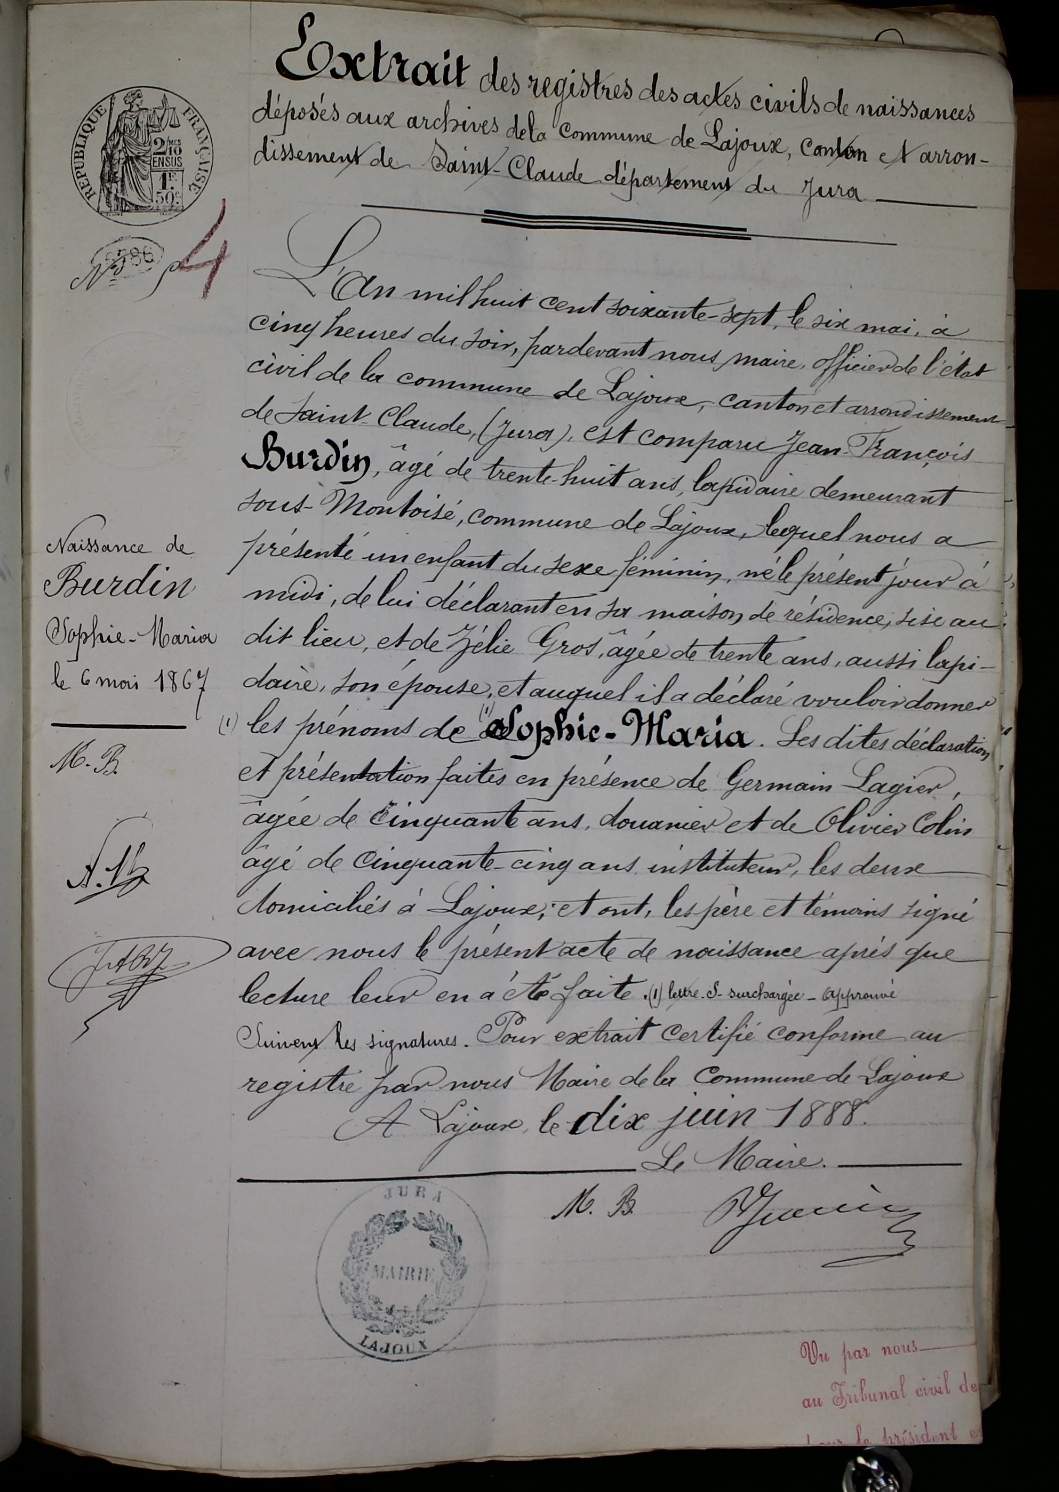 Extrait des registres des actes civils de naissances
déposés aux archives de la Commune de Lajoux, canton et arron-
dissement de Saint-Claude département du Jura
RÉPUBLIQUE FRANÇAISE
2/10 EN SUS
1F 50c
586
4
L'An mil huit cent soixante-sept, le six mai, à
cinq heures du soir, pardevant nous maire, officier de l'état
civil de la commune de Lajoux, canton et arrondissement
de Saint-Claude, (Jura), est comparu Jean-François
Burdin, âgé de trente-huit ans, lapidaire demeurant
sous-Montoisé, commune de Lajoux, lequel nous a
présenté un enfant du sexe féminin, né le présent jour à
midi, de lui déclarant en sa maison de résidence, sise au
dit lieu, et de Zélie Gros, âgée de trente ans, aussi lapi-
daire, son épouse, et auquel il a déclaré vouloir donner
(1) les prénoms de (1) Sophie-Maria. Les dites déclaration
et présentation faites en présence de Germain Lagier,
âgée de cinquante ans, douanier et de Olivier Colin
âgé de cinquante-cinq ans instituteur, les deux
domiciliés à Lajoux; et ont, les père et témoins signé
avec nous le présent acte de naissance après que
lecture leur en a été faite. (1) lettre-S-surchargée-approuvé
Suivent les signatures. Pour extrait certifié conforme au
registre par nous Maire de la Commune de Lajoux
A Lajoux, le dix juin 1888.
Le Maire.
M. B.
Naissance de
Burdin
Sophie-Maria
le 6 mai 1867
M. B.
JURA
MAIRIE
LAJOUX
Vu par nous
au Tribunal civil de
le président